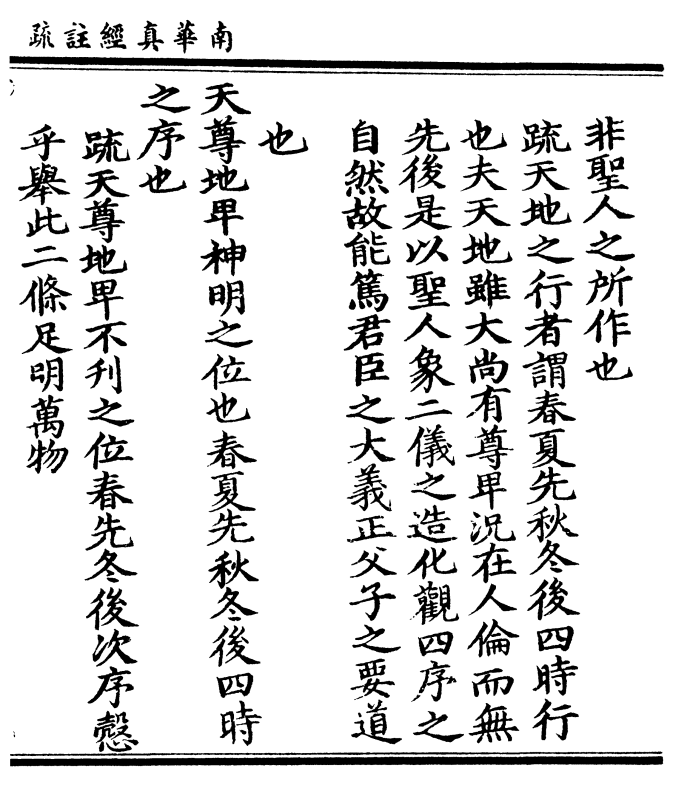 南華真經註疏
非聖人之所作也
疏天地之行者謂春夏先秋冬後四時行
也夫天地雖大尚有尊卑況在人倫而無
先後是以聖人象二儀之造化觀四序之
自然故能篤君臣之大義正父子之要道
也
天尊地卑神明之位也春夏先秋冬後四時
之序也
疏天尊地卑不刊之位春先冬後次序慤
乎舉此二條足明萬物